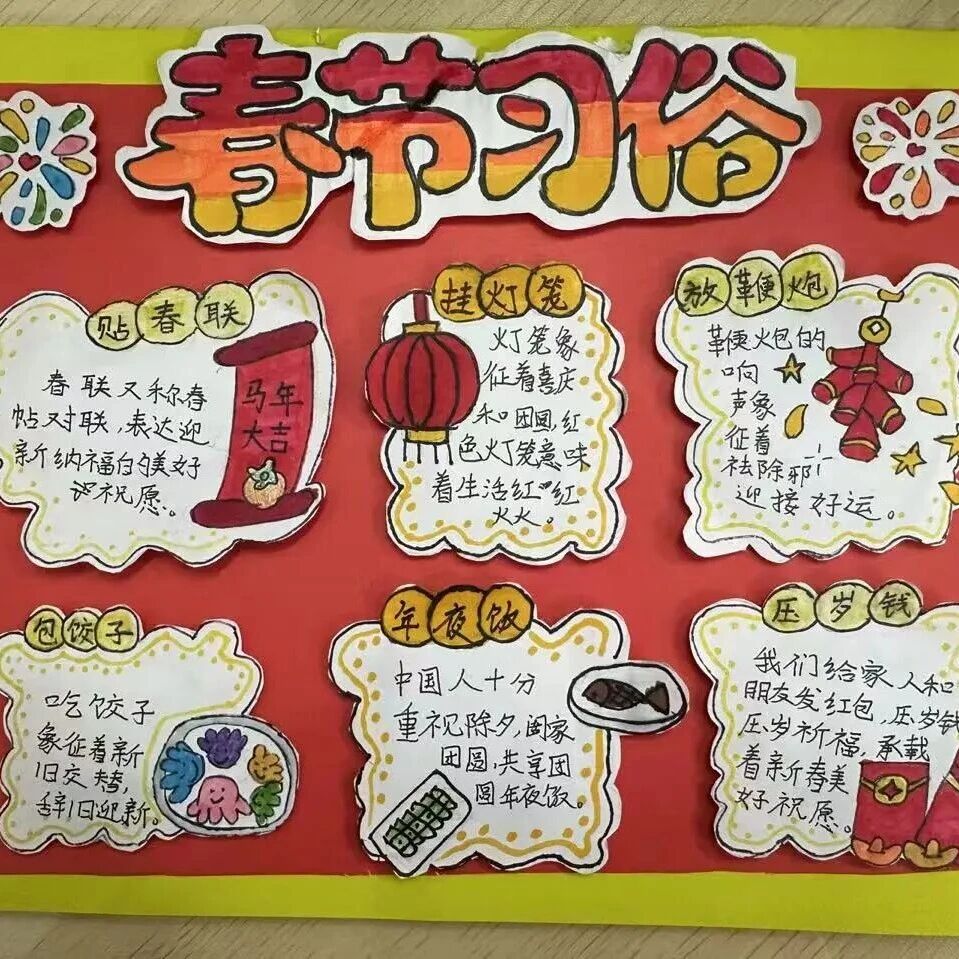 春节习俗
贴春联
春联又称春
帖对联,表达迎
新纳福的美好
祝愿。
马年
大吉
挂灯笼
灯笼象
征着喜庆
和团圆,红
色灯笼意味
着生活红红
火火。
放鞭炮
鞭炮的
响
声象
征着
祛除邪
迎接好运。
包饺子
吃饺子
象征着新
旧交替,
辞旧迎新。
年夜饭
中国人十分
重视除夕,阖家
团圆,共享团
圆年夜饭。
压岁钱
我们给家人和
朋友发红包,压岁钱
压岁祈福,承载
着新春美
好祝愿。